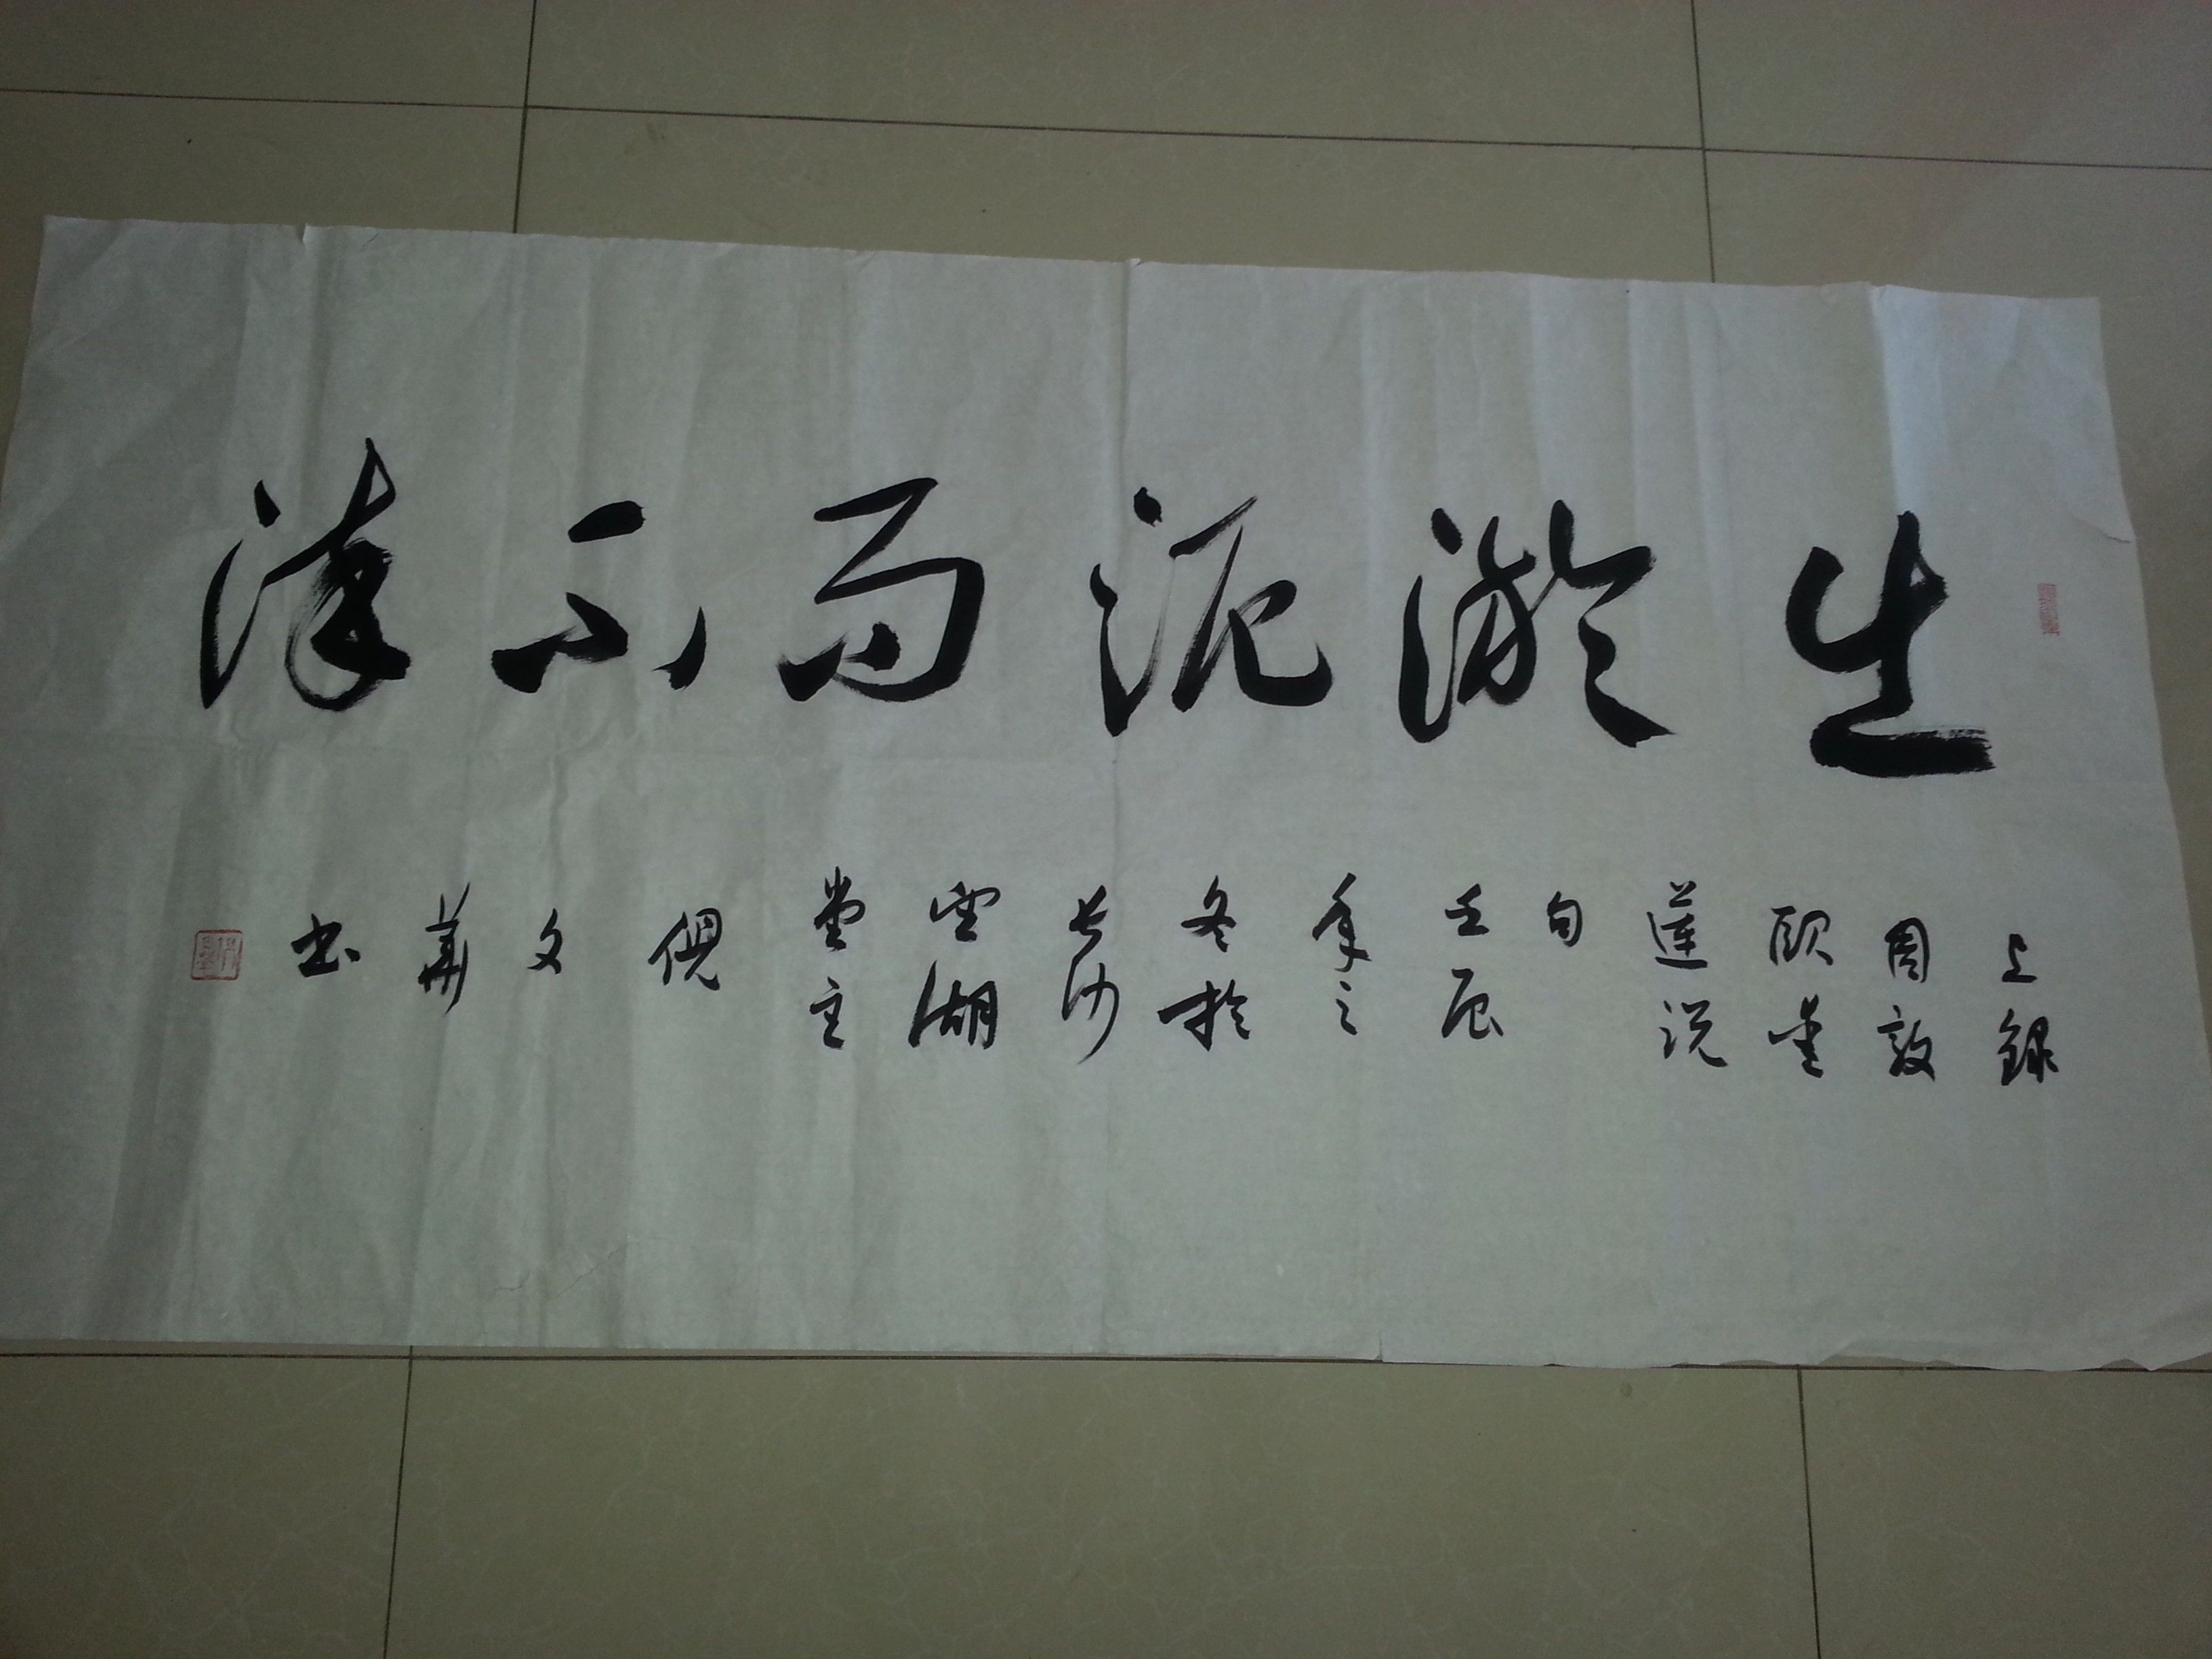 出淤泥而不染
上録
周敦
頤愛
蓮说
句
壬辰
年之
冬於
长沙
湖
堂主
倪
文
華
书